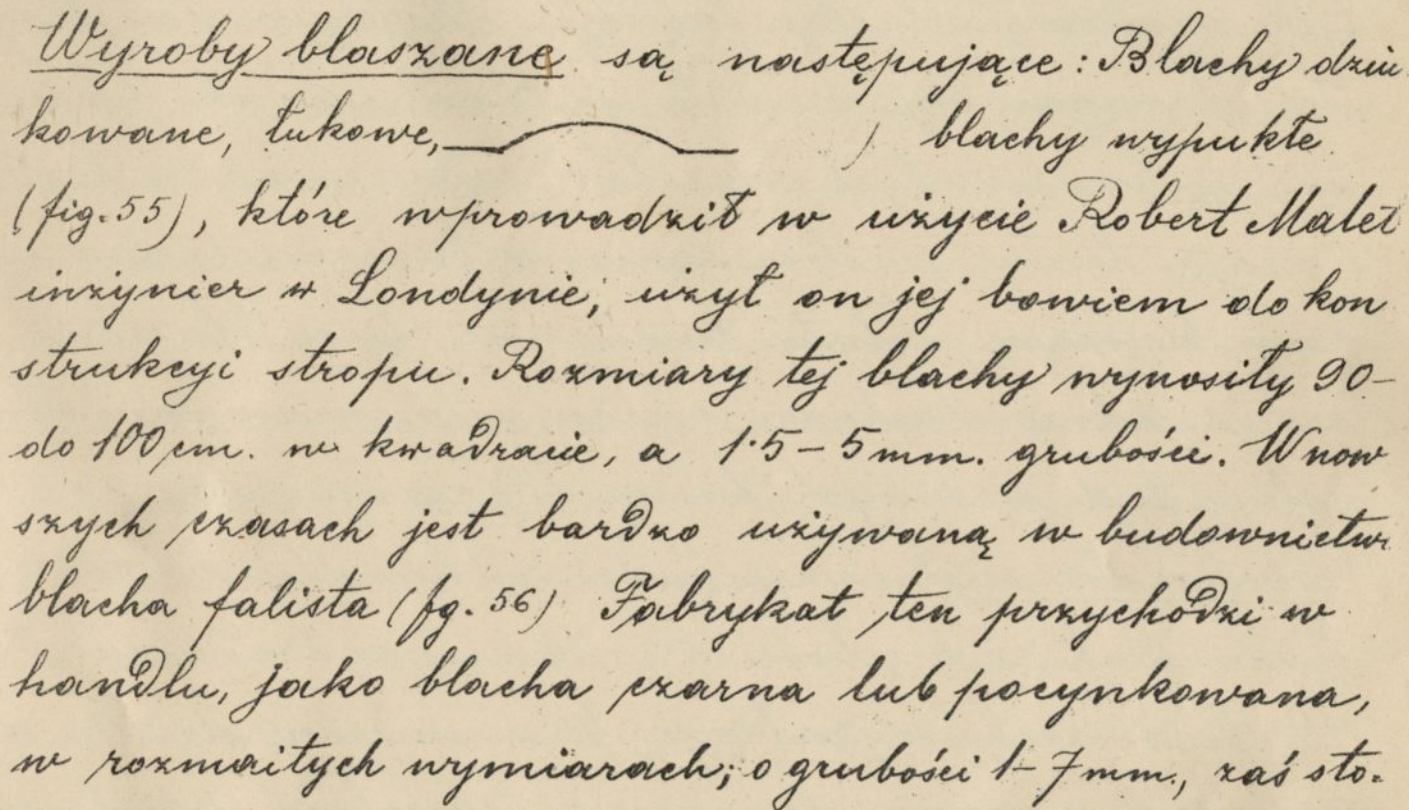 Wyroby blaszane są następujące: Blachy dziu
kowane, łukowe, ) blachy wypukłe
(fig. 55), które wprowadził w użycie Robert Malet
inżynier w Londynie; użył on jej bowiem do kon
strukcyi stropu. Rozmiary tej blachy wynosiły 90-
do 100 cm. w kwadracie, a 1·5 - 5 mm. grubości. W now
szych czasach jest bardzo używaną w budownictw
blacha falista (fg. 56) Fabrykat ten przychodzi w
handlu, jako blacha czarna lub pocynkowana,
w rozmaitych wymiarach; o grubości 1 - 7 mm., zaś sto-